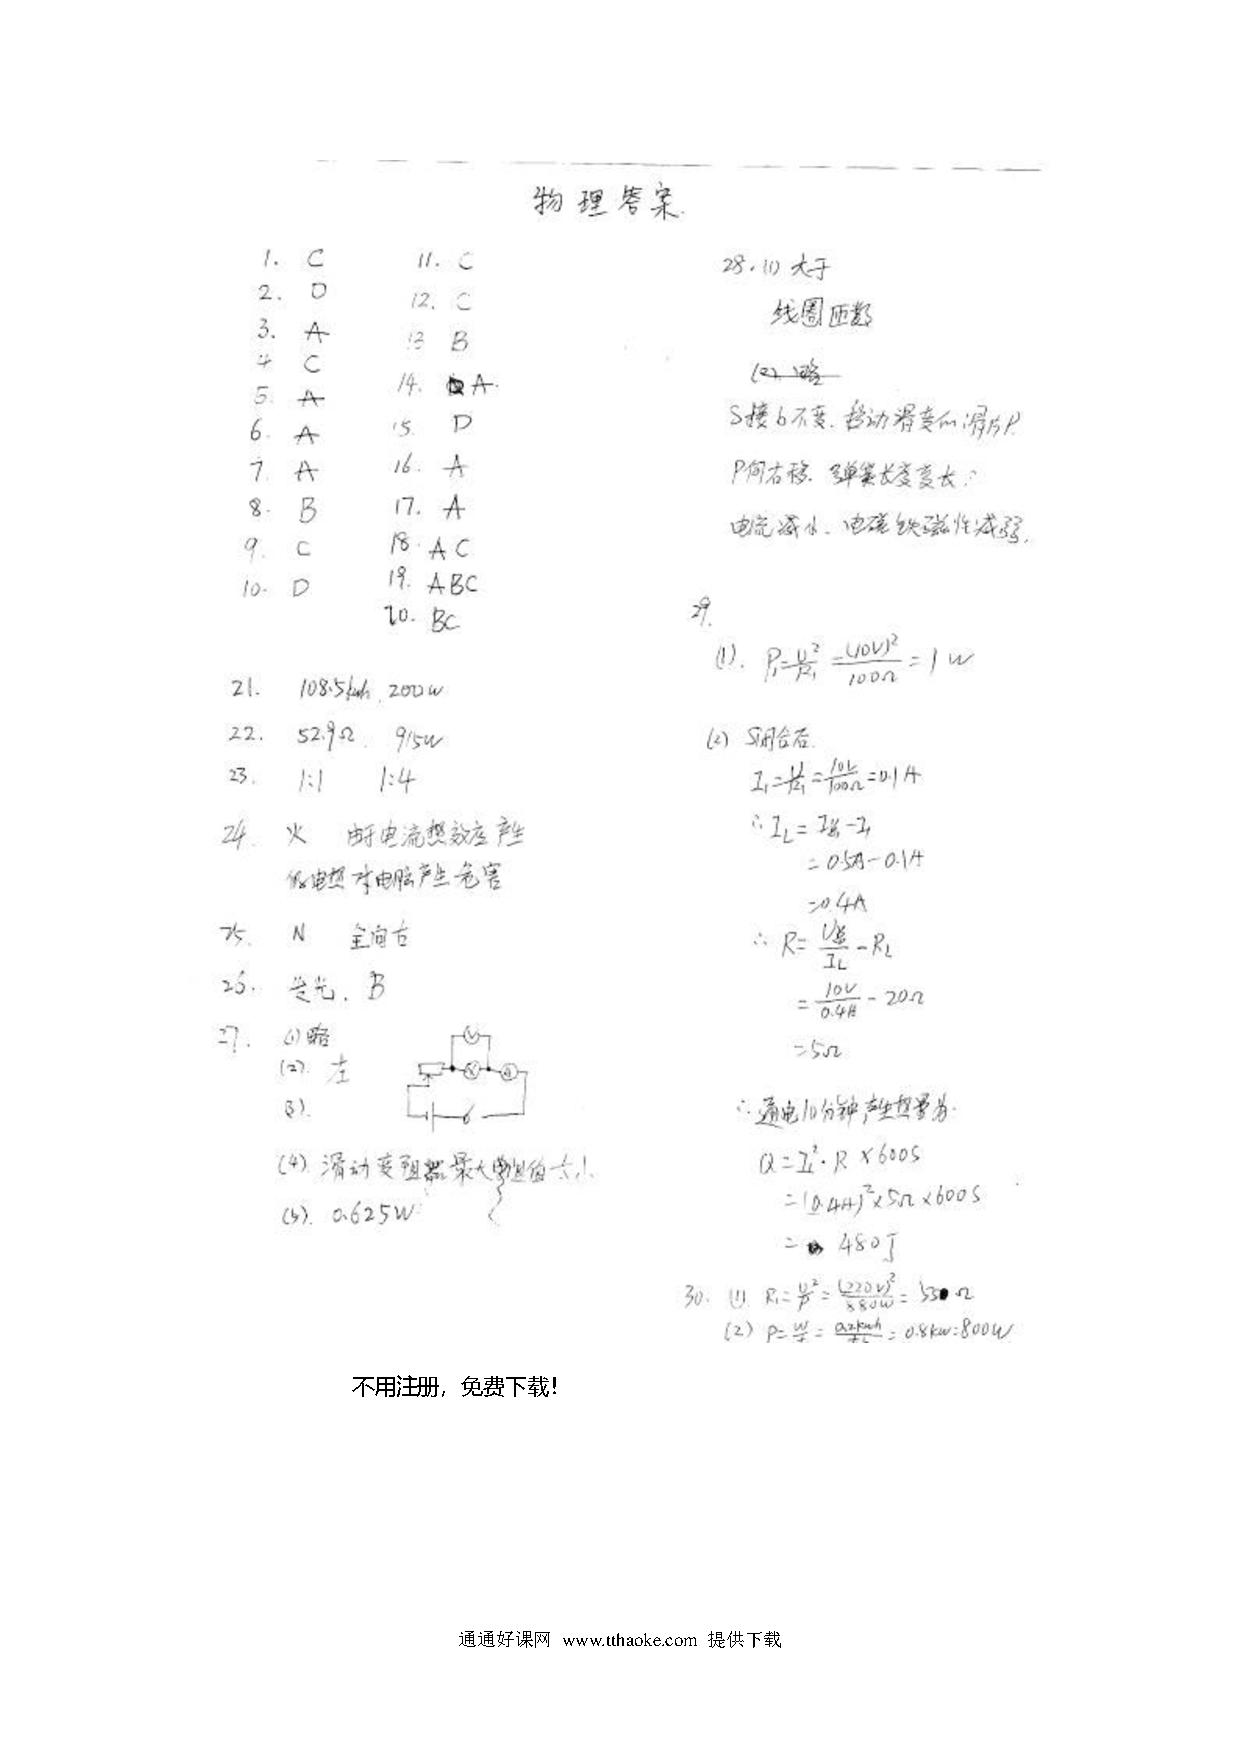 物理答案.
1. C
2. D
3. A
4 C
5. A
6. A
7. A
8. B
9. C
10. D
11. C
12. C
13 B
14. A.
15. D
16. A
17. A
18. AC
19. ABC
20. BC
21. 108.5kwh, 200W
22. 52.9Ω 915W
23. 1:1 1:4
24. 火 由于电流热效应产生
电热对电脑产生危害
25. N 全向右
26. 发光, B
27. (1)略
(2) 左
(3).
V
A
(4). 滑动变阻器最大电阻值太小
(5). 0.625W
28.(1) 大于
线圈匝数
(2) 略
S接b不变, 移动滑变的滑片P
P向右移, 弹簧长度变长;
电流减小, 电磁铁磁性减弱.
29.
(1). P₁=U²/R₁=(10V)²/100Ω=1W
(2) S闭合后.
I₁=U/R₁=10V/100Ω=0.1A
∴I_L=I总-I₁
=0.5A-0.1A
=0.4A
∴R=U总/I_L-R_L
=10V/0.4A-20Ω
=5Ω
∴通电10分钟产生热量为.
Q=I_L²·R×600S
=(0.4A)²×5Ω×600S
=480J
30. (1) R₁=U²/P=(220V)²/880W=55Ω
(2) P=W/t=0.2kwh/=0.8kw=800W
不用注册，免费下载！
通通好课网 www.tthaoke.com 提供下载